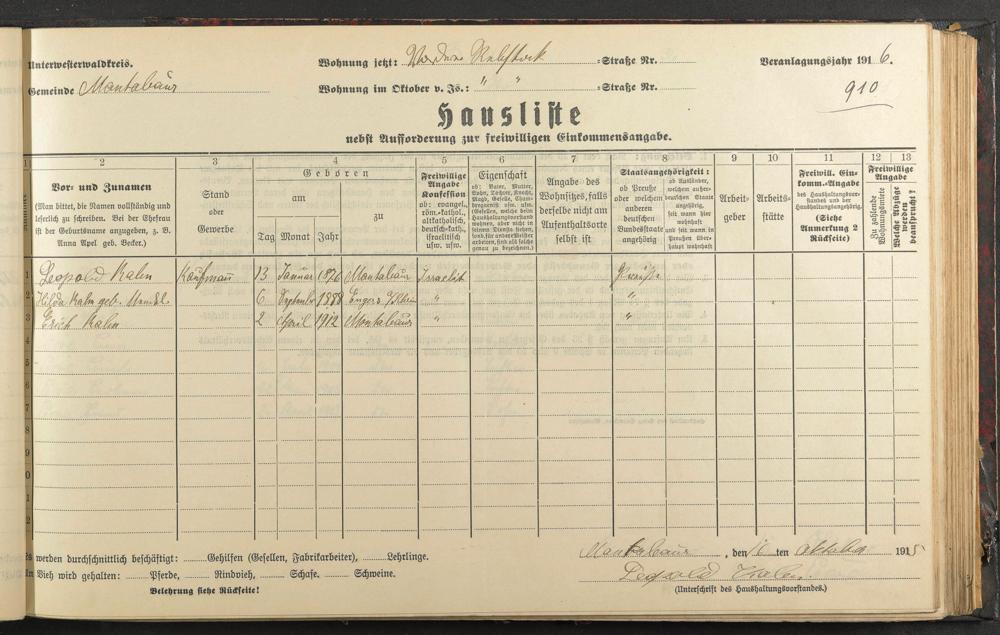 Unterwesterwaldkreis.
Wohnung jetzt: Vordere Rebstock -Straße Nr.
Veranlagungsjahr 1916.
Gemeinde Montabaur
Wohnung im Oktober v. Js.: " " -Straße Nr.
910
Hausliste
nebst Aufforderung zur freiwilligen Einkommensangabe.
1 2 3 4 5 6 7 8 9 10 11 12 13
Vor- und Zunamen
(Man bittet, die Namen vollständig und
leserlich zu schreiben. Bei der Ehefrau
ist der Geburtsname anzugeben, z. B.
Anna Apel geb. Becker.)
Stand
oder
Gewerbe
Geboren
am
zu
Tag Monat Jahr
Freiwillige
Angabe
Konfession
ob: evangel.,
röm.-kathol.,
altkatholisch
deutsch-kath.,
israelitisch
usw. usw.
Eigenschaft
ob: Vater, Mutter,
Sohn, Tochter, Knecht,
Magd, Geselle,
Angabe des
Wohnsitzes, falls
derselbe nicht am
Aufenthaltsorte
selbst ist
Staatsangehörigkeit:
ob Preuße
oder welchem
anderen
deutschen
Bundesstaate
angehörig
ob Ausländer,
welchem außer-
deutschen Staate
angehörig,
seit wann hier
wohnhaft und
seit wann in
Preußen über-
haupt wohnhaft
Arbeit-
geber
Arbeits-
stätte
Freiwill. Ein-
komm.-Angabe
des Haushaltungsvor-
standes und der
Haushaltungsangehörig.
(Siehe
Anmerkung 2
Rückseite)
Freiwillige
Angabe
Zu zahlende
Wohnungsmiete
Welche Abzüge
werden
beansprucht?
1 Leopold Kahn Kaufmann 13 Januar 1876 Montabaur Israelit Preuße
2 Hilda Kahn geb. 6 Septemb. 1888 Engers a/Rhein " "
3 Erich Kahn 2 April 1912 Montabaur " "
4
5
6
7
8
9
0
1
2
Es werden durchschnittlich beschäftigt: Gehilfen (Gesellen, Fabrikarbeiter), Lehrlinge.
An Vieh wird gehalten: Pferde, Rindvieh, Schafe. Schweine.
Belehrung siehe Rückseite!
Montabaur, den ten Oktober 1915
Leopold Kahn.
(Unterschrift des Haushaltungsvorstandes.)